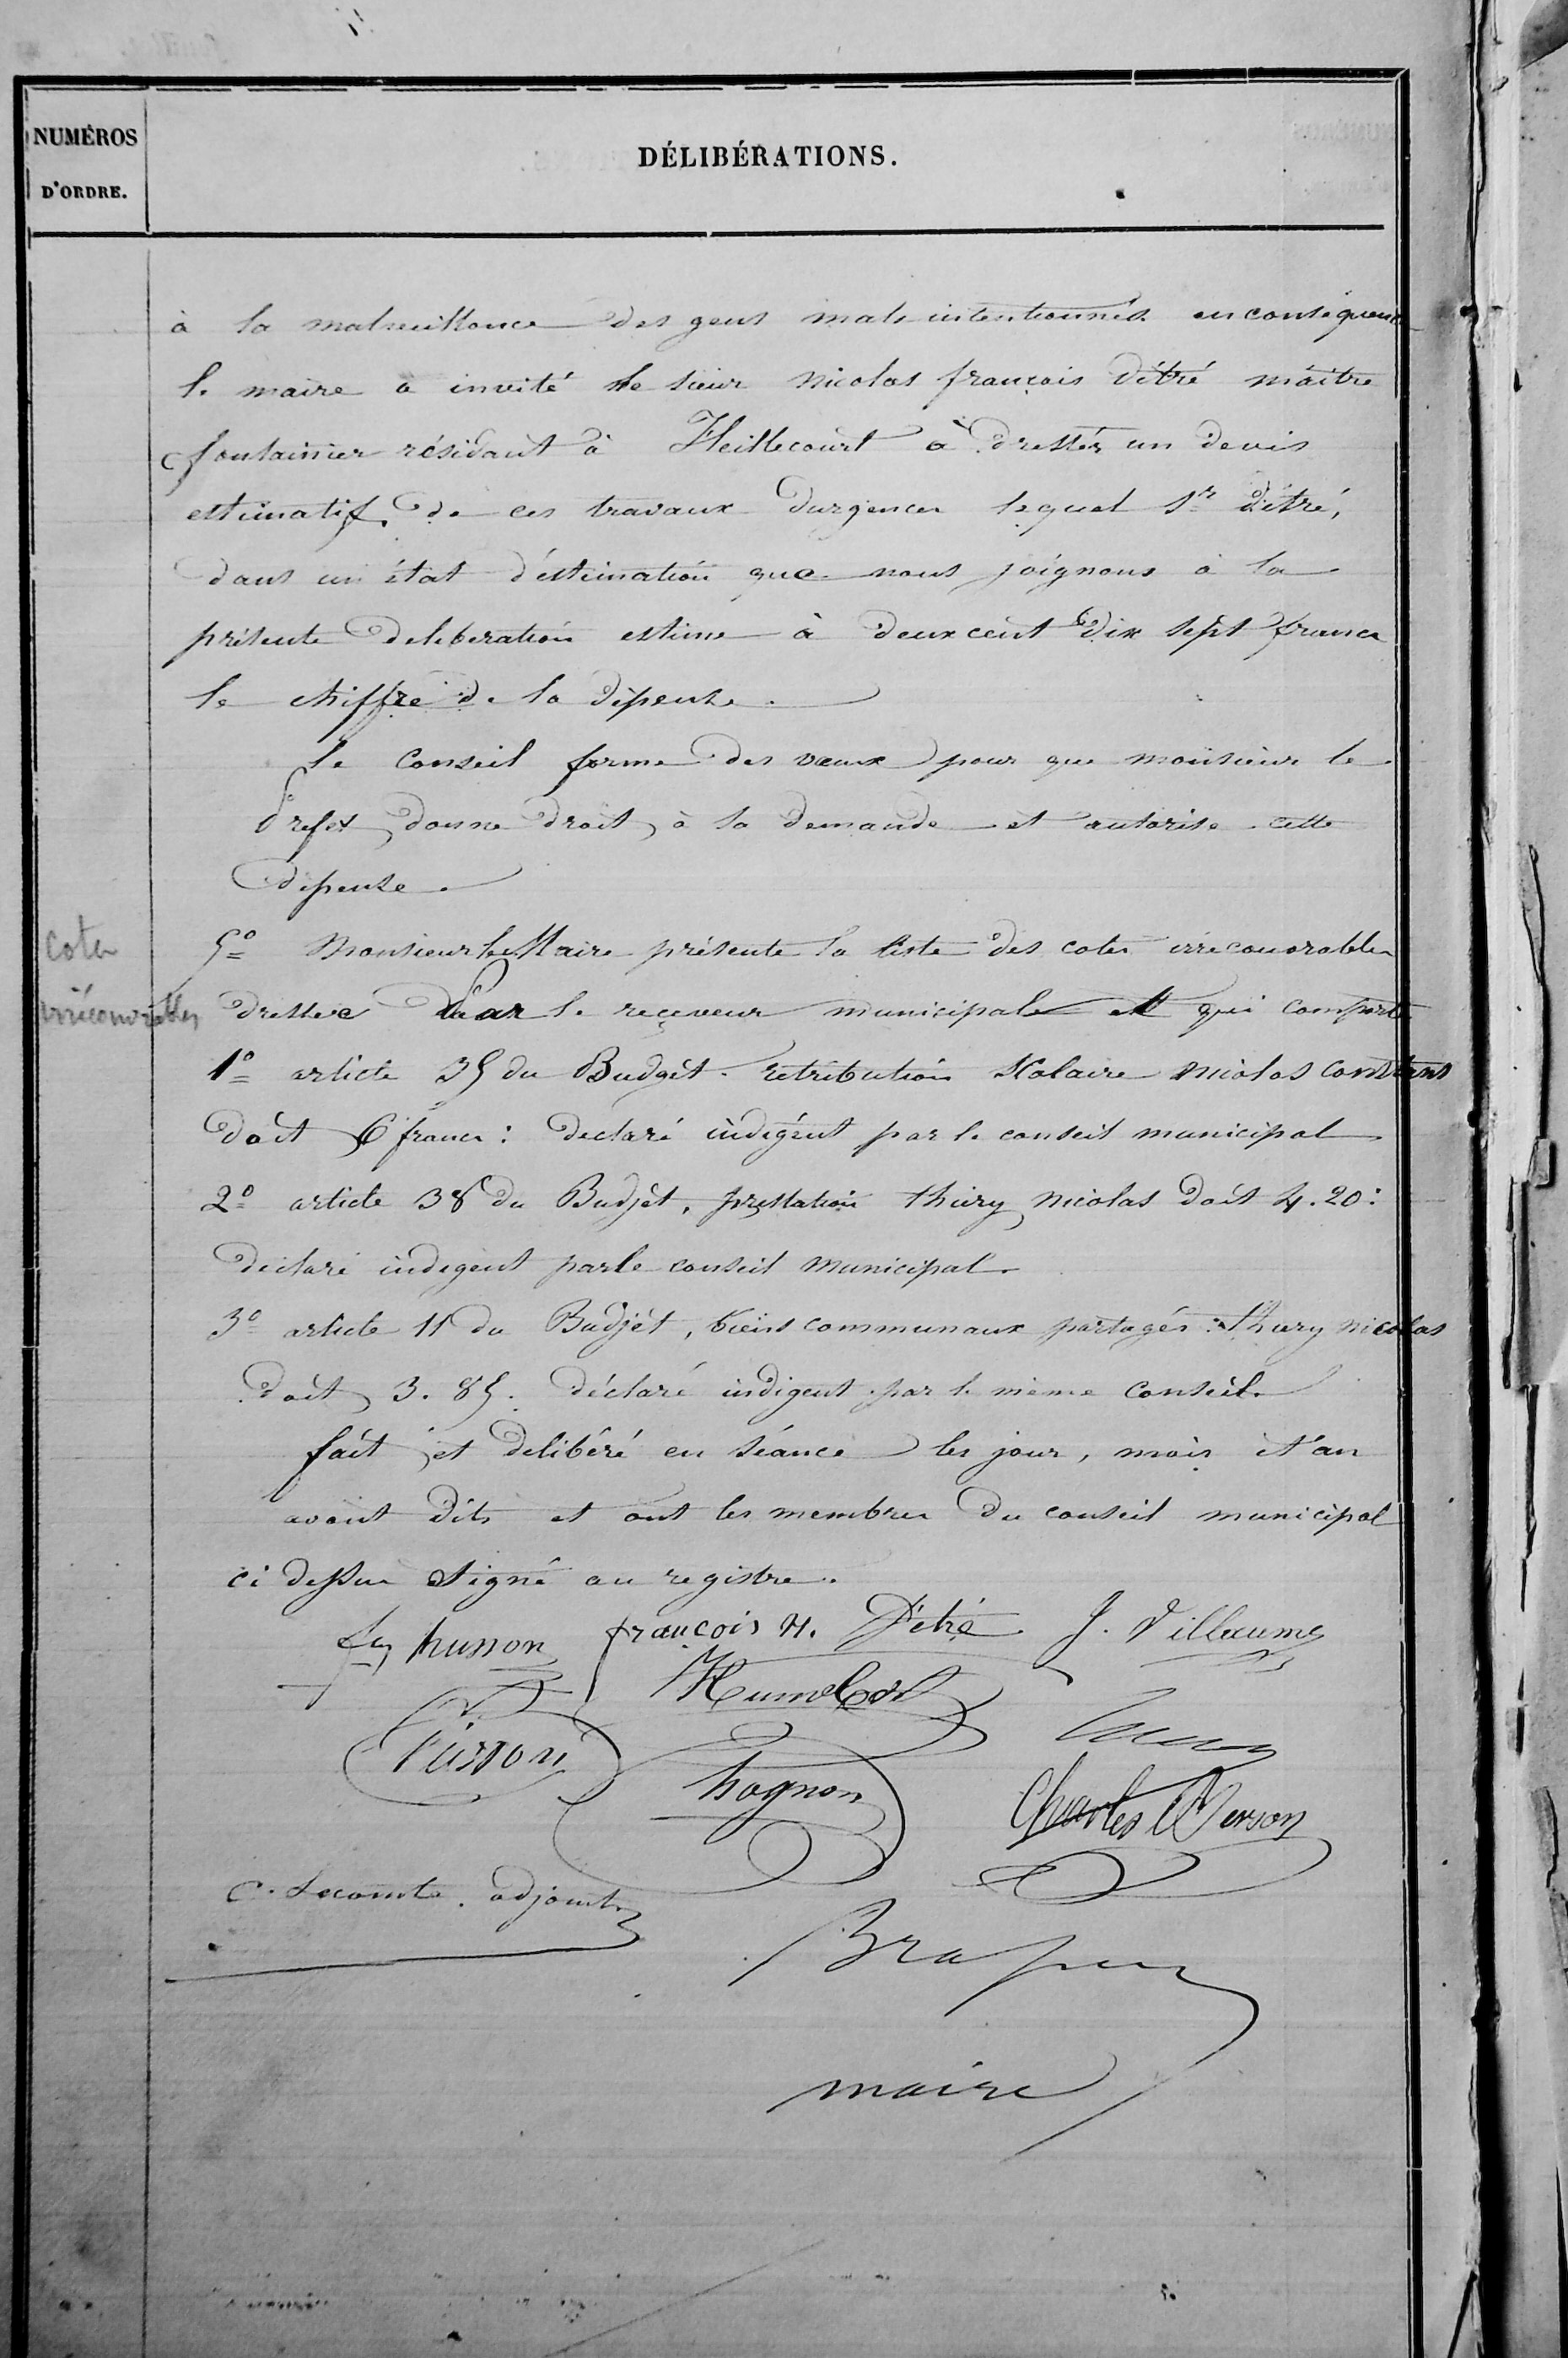 NUMÉROS
D'ORDRE.
DÉLIBÉRATIONS.
à la malveillance des gens mals intentionnés en conséquence
le maire a invité le sieur Nicolas françois Détré maître
fontainier résidant à Heillecourt à dresser un devis
estimatif de ces travaux durgences lequel Sr Détré,
dans un état d'éstimation que nous joignons à la
présente deliberation estime à deux cent dix sept francs
le chiffre de la dépense.
le Conseil forme des vœux pour que monsieur le
Préfet donne droit à sa demande et autorise cette
dépense.
cotes
irrécouvrables
5º Monsieur le Maire présente la liste des cotes irrecouvrables
dressee par le receveur municipal et qui comporte
1º article 35 du Budgèt. retribution scolaire Nicolas Constans
doit 6 francs: declaré indigént par le conseil municipal
2º article 38 du Budjèt, prestation thiery Nicolas doit 4.20:
déclaré indigent par le conseil municipal.
3º article 11 du Budjèt, biens communaux partagés: thiery Nicolas
doit 3.85. déclaré indigent par le même Conseil.
fait et delibéré en séance les jour, mois et an
avant dits et ont les membres du conseil municipal
ci dessus signé au registre.
husson françois N. Détré J. Villaume
Humbert
husson
hognon
Charles Person
C. Lecomte. adjoint
maire